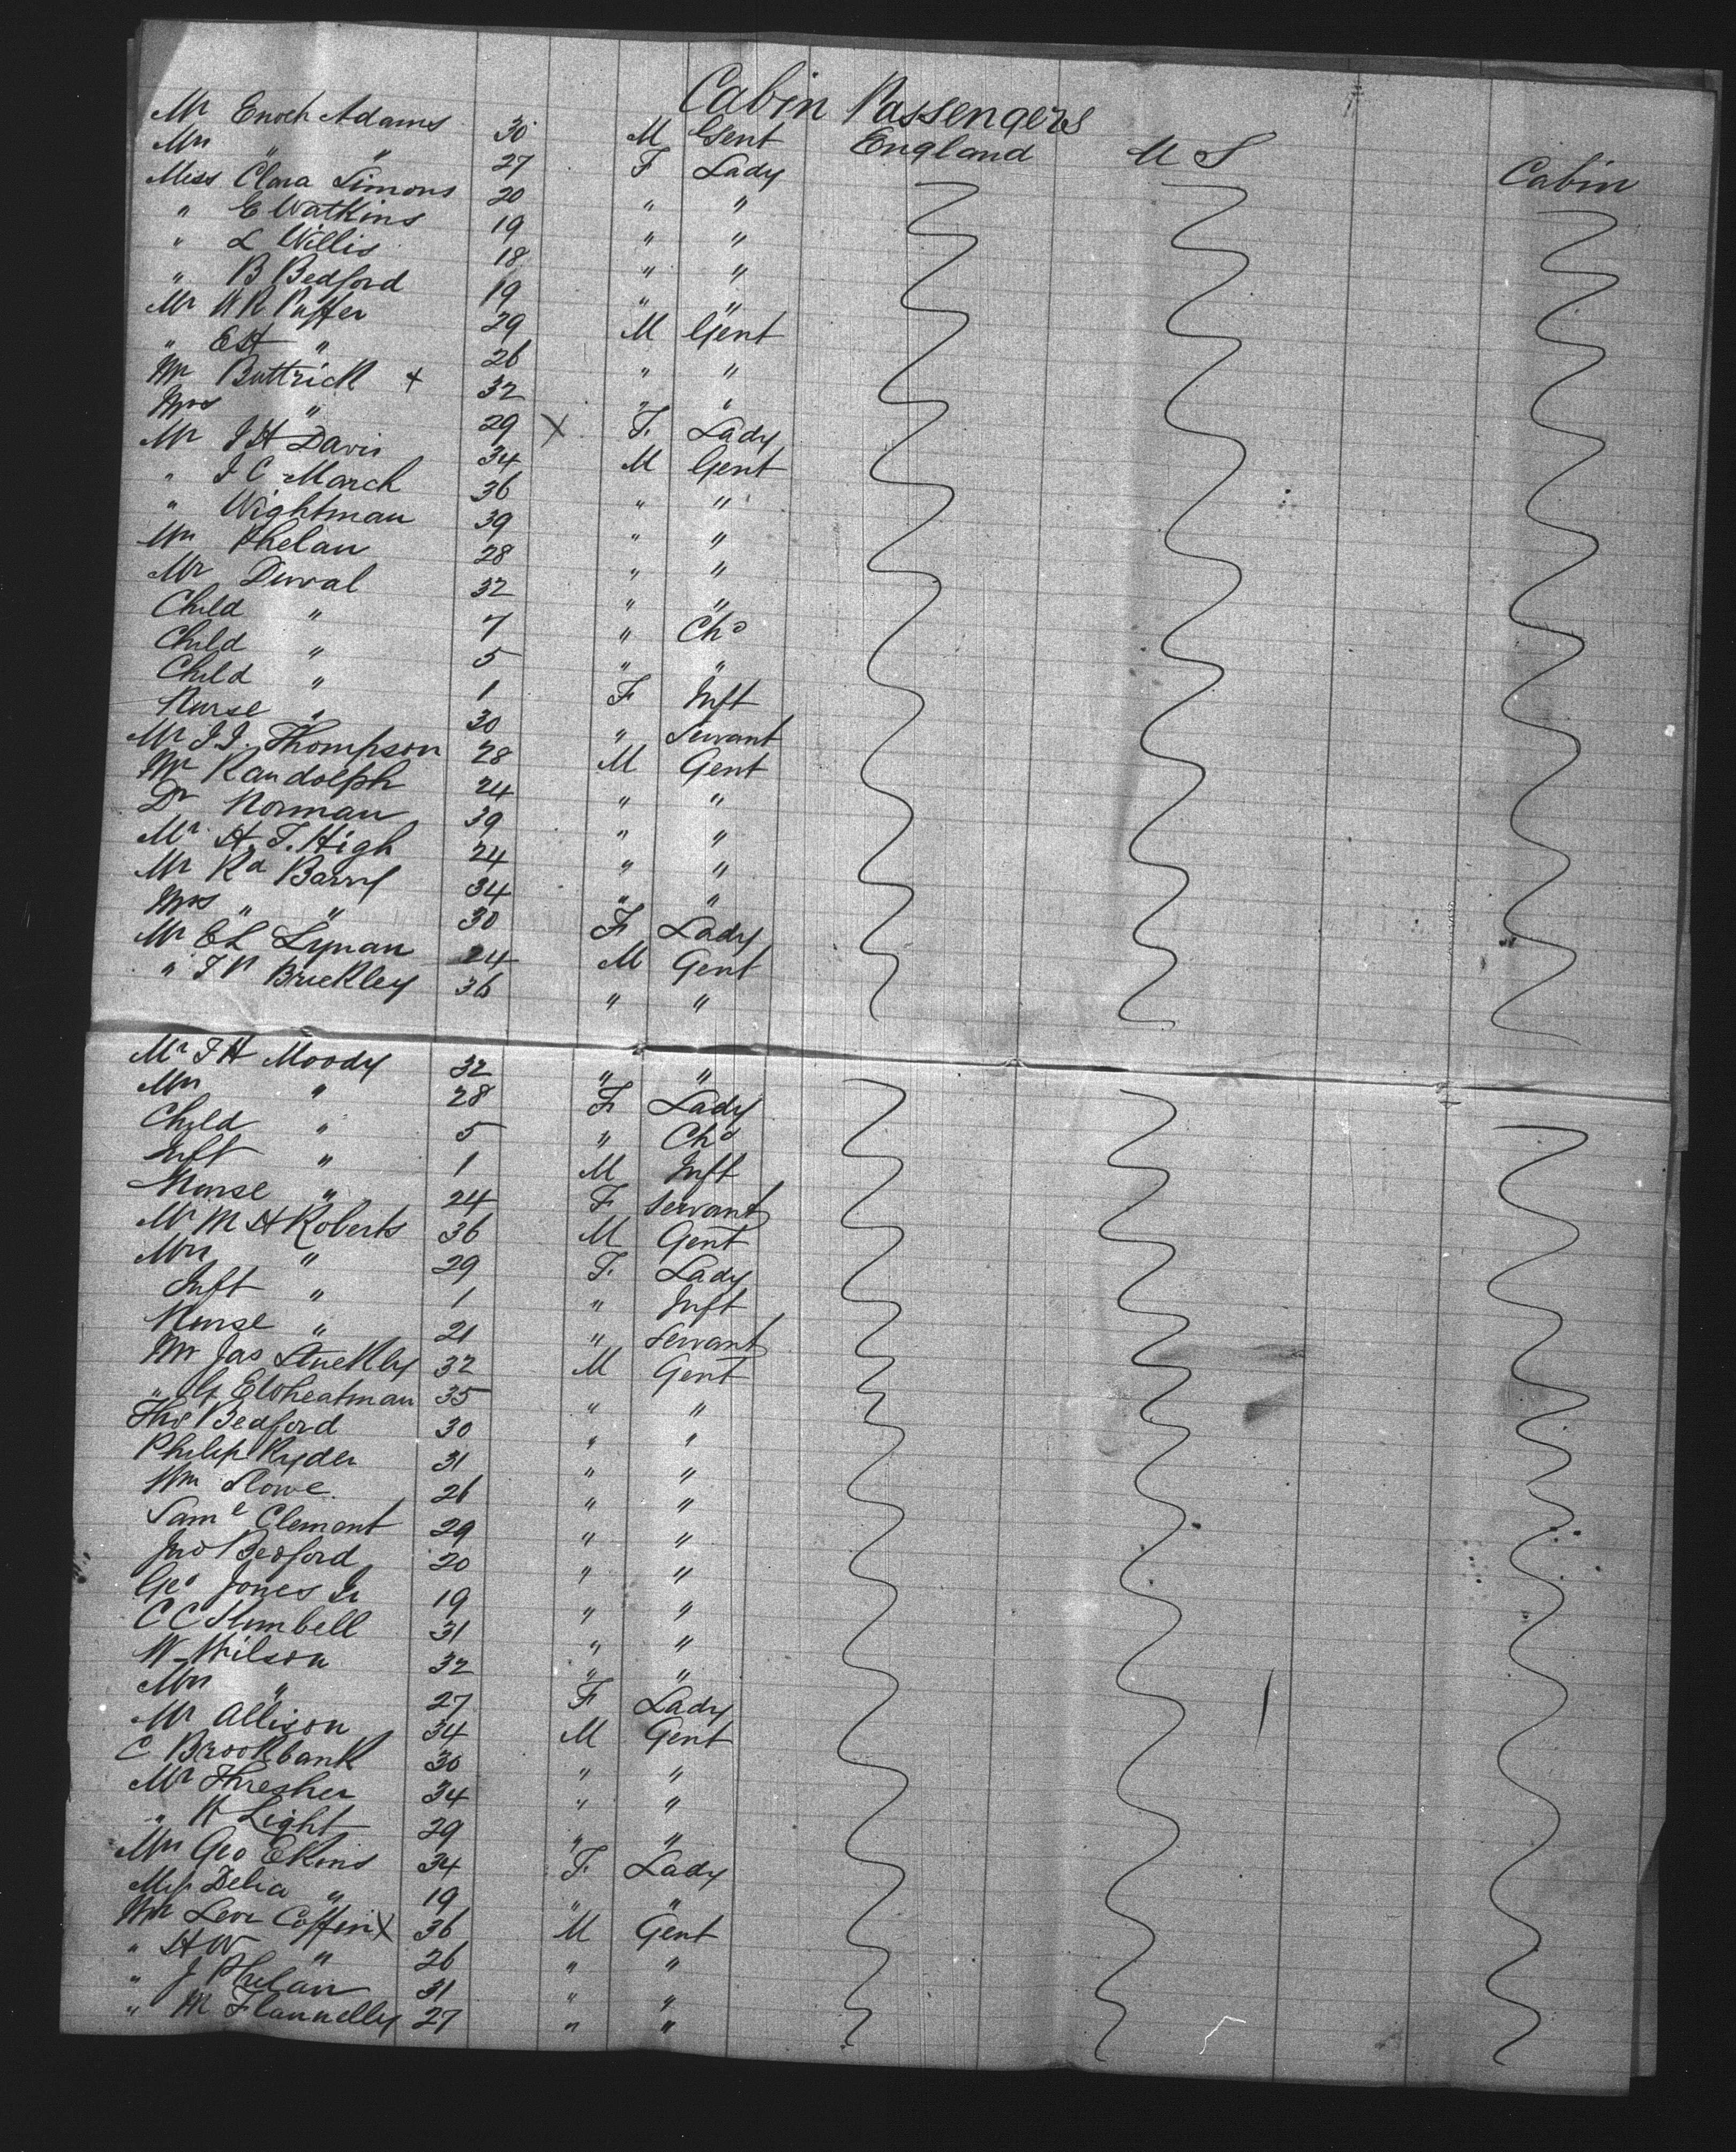 Cabin Passengers
Mr Enoch Adams 30 M Gent England U S Cabin
Mrs " " 27 F Lady
Miss Clara Simons 20 " "
" E Watkins 19 " "
" L Willis 18 " "
" B Bedford 19 " "
Mr W R Puffer 29 M Gent
" E H " 26 " "
Mr Buttrick + 32 " "
Mrs " 29 X F Lady
Mr J H Davis 34 M Gent
" J C March 36 " "
" Wightman 39 " "
Mr Phelan 28 " "
Mr Duval 32 " "
Child " 7 " Chd
Child " 5 " "
Child " 1 F Inft
Nurse " 30 " Servant
Mr J J. Thompson 28 M Gent
Mr Randolph 24 " "
Dr Norman 39 " "
Mr H. T. High 24 " "
Mr Rd Barry 34 " "
Mrs " " 30 F Lady
Mr E L Lyman 24 M Gent
" T P Brickley 36 " "
Mr F H Moody 32 " "
Mrs " 28 F Lady
Child " 5 " Chd
Inft " 1 M Inft
Nurse " 24 F Servant
Mr M H Roberts 36 M Gent
Mrs " 29 F Lady
Inft " 1 " Inft
Nurse " 21 " Servant
Mr Jas Stuckley 32 M Gent
" G E Wheatman 35 " "
Thos Bedford 30 " "
Philip Ryder 31 " "
Wm Slowe 26 " "
Saml Clemont 29 " "
Jno Bedford 20 " "
Geo Jones Jr 19 " "
C C 31 " "
W Wilson 32 " "
Mrs " 27 F Lady
Mr Allison 34 M Gent
C Brookbank 30 " "
Mr Thresher 34 " "
" H Light 29 " "
Mrs Geo Ekins 34 F Lady
Miss Delia " 19 " "
Mr Levi Coffin X 36 M Gent
" H W " 26 " "
" J Phelan 31 " "
" M Flannelly 27 " "